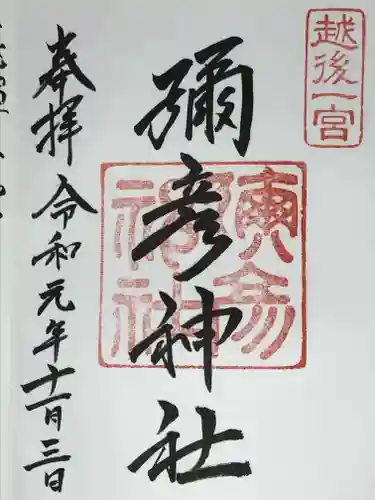 越後一宮
彌彦神社
奉拝 令和元年十一月三日